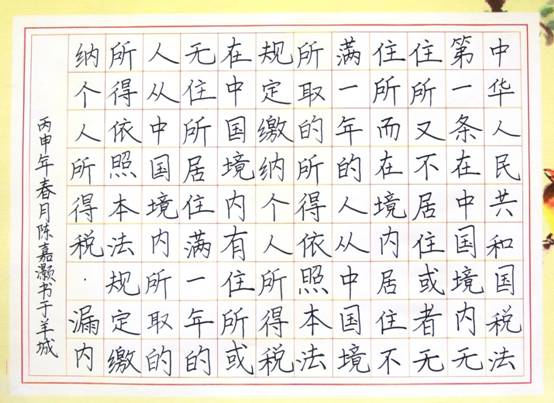 中华人民共和国税法
第一条在中国境内无
住所又不居住或者无
住所而在境内居住不
满一年的人从中国境
所取的所得依照本法
规定缴纳个人所得税
在中国境内有住所或
无住所居住满一年的
人从中国境内所取的
所得依照本法规定缴
纳个人所得税·漏内
丙申年春月陈嘉灏书于羊城